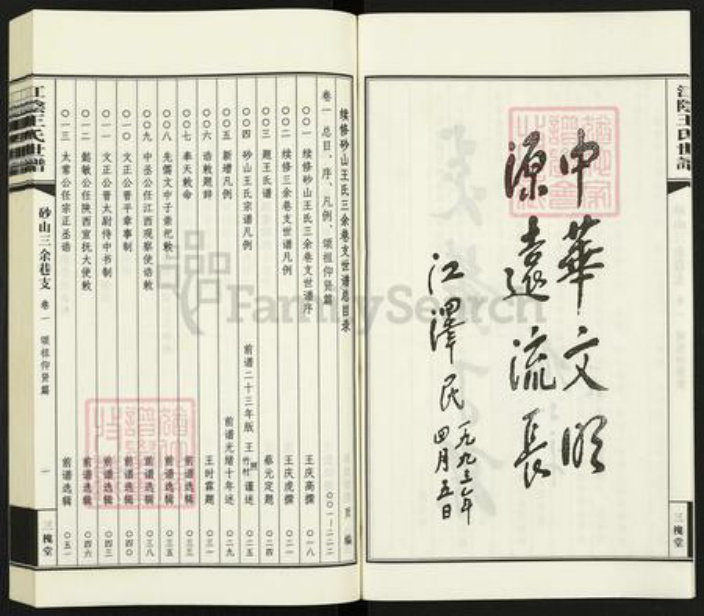 江陰王氏世譜
中華文明
源遠流長
江澤民
一九九三年
四月五日
三槐堂
续修砂山王氏三余巷支世谱总目录
页 编
卷一 总目、序、凡例、颂祖仰贤篇 〇〇一-二二二
〇〇一 续修砂山王氏三余巷支世谱序 王庆高撰 〇一八
〇〇二 续修三余巷支世谱凡例 王庆虎撰 〇二〇
〇〇三 题王氏谱 蔡元定题 〇二四
〇〇四 砂山王氏宗谱凡例 前谱二十三年版 王竹村谨述 〇二五
〇〇五 新增凡例 前谱光绪十年述 〇二九
〇〇六 诰敕题辞 王时霖题 〇三一
〇〇七 奉天敕命 前谱选辑 〇三三
〇〇八 先儒文中子崇祀敕 前谱选辑 〇三五
〇〇九 中丞公任江西观察使诰敕 前谱选辑 〇三八
〇一〇 文正公晋平章事制 前谱选辑 〇四〇
〇一一 文正公晋太尉侍中书制 前谱选辑 〇四三
〇一二 懿敏公任陕西宣抚大使敕 前谱选辑 〇四六
〇一三 太常公任宗正丞诰 前谱选辑 〇五一
江陰王氏世譜
砂山三余巷支 卷一 颂祖仰贤篇
一
三槐堂
FamilySearch